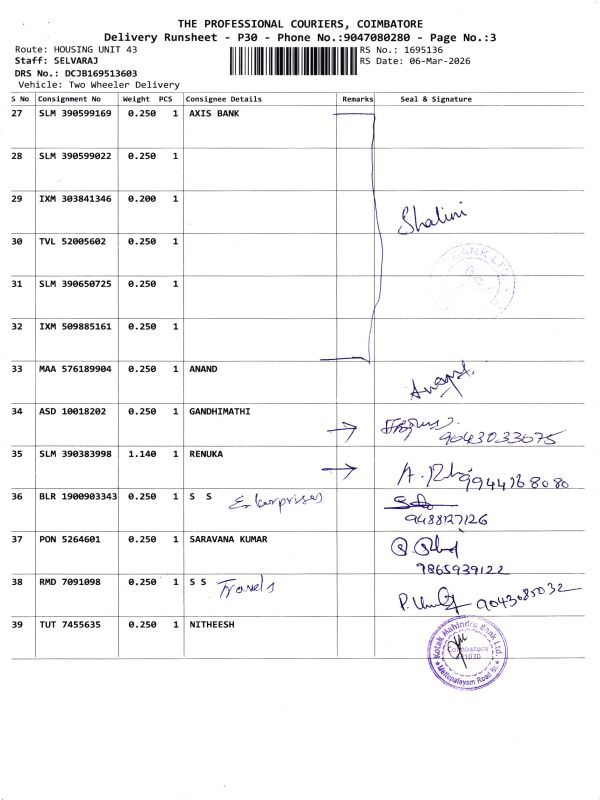 THE PROFESSIONAL COURIERS, COIMBATORE
Delivery Runsheet - P30 - Phone No.:9047080280 - Page No.:3
Route: HOUSING UNIT 43
RS No.: 1695136
Staff: SELVARAJ
RS Date: 06-Mar-2026
DRS No.: DCJB169513603
Vehicle: Two Wheeler Delivery
S No Consignment No Weight PCS Consignee Details Remarks Seal & Signature
27 SLM 390599169 0.250 1 AXIS BANK
28 SLM 390599022 0.250 1
29 IXM 303841346 0.200 1
Shalini
30 TVL 52005602 0.250 1
BANK LTD
31 SLM 390650725 0.250 1
32 IXM 509885161 0.250 1
33 MAA 576189904 0.250 1 ANAND
34 ASD 10018202 0.250 1 GANDHIMATHI
9043033075
35 SLM 390383998 1.140 1 RENUKA
9944168080
36 BLR 1900903343 0.250 1 S S Enterprises
9488127126
37 PON 5264601 0.250 1 SARAVANA KUMAR
9865939122
38 RMD 7091098 0.250 1 S S Travels
9043085032
39 TUT 7455635 0.250 1 NITHEESH
Kotak Mahindra Bank Ltd.
Coimbatore
Mettupalayam Road Br.